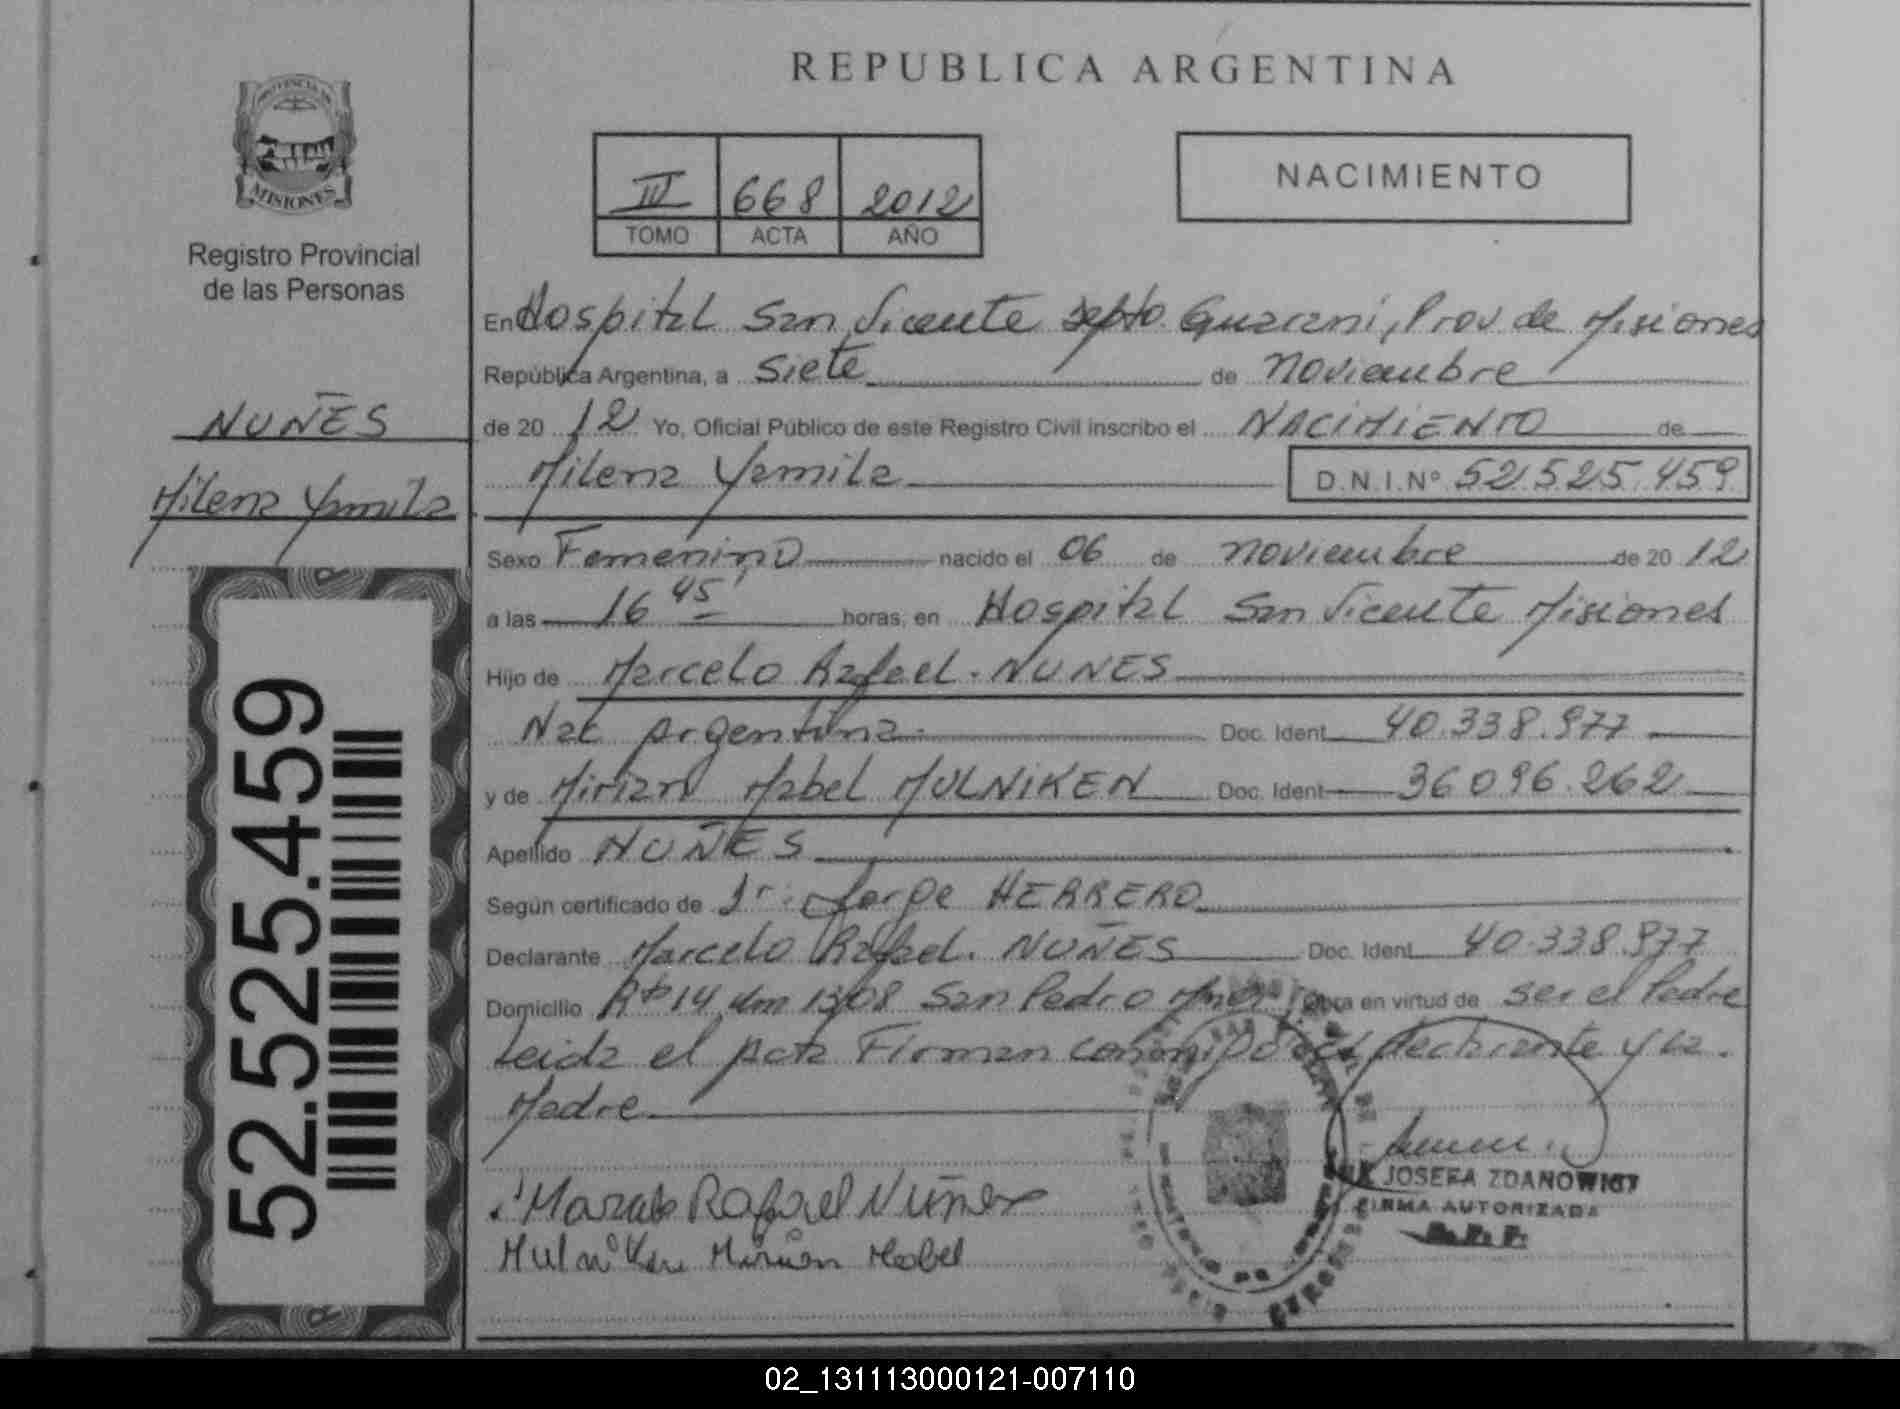 REPUBLICA ARGENTINA
PROVINCIA DE
MISIONES
Registro Provincial
de las Personas
III 668 2012
TOMO ACTA AÑO
NACIMIENTO
NUÑES
Milena Yamila
52.525.459
En Hospital San Vicente Depto. Guarani, Prov de Misiones
República Argentina, a Siete de Noviembre
de 20 12 Yo, Oficial Público de este Registro Civil inscribo el NACIMIENTO de
Milena Yamila D.N.I.Nº 52.525.459
Sexo Femenino nacido el 06 de noviembre de 20 12
a las 16 45 horas, en Hospital San Vicente Misiones
Hijo de Marcelo Rafael. NUNES
Nac Argentina. Doc. Ident. 40.338.977
y de Mirian Mabel MULNIKEN Doc. Ident 36.096.262
Apellido NUÑES
Según certificado de Dr. Jorge HERRERO
Declarante Marcelo Rafael. NUÑES Doc. Ident. 40.338.977
Domicilio Rta 14 km 1308 San Pedro Mnes Obra en virtud de ser el Padre
Leida el Acta Firman conmigo el declarante y la.
Madre
Rafael Nuñes
Mulniken Mirian Mabel
JOSEFA ZDANOWICZ
FIRMA AUTORIZADA
R.P.P.
02_131113000121-007110